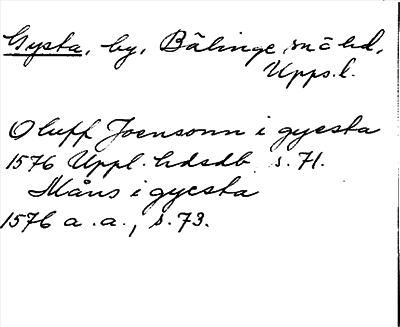 Gysta, by, Bälinge sn o hd,
Upps. l.
Oluff Joensonn i gyesta
1576 Uppl. hdsdb s. 71.
Måns i gyesta
1576 a. a., s. 73.